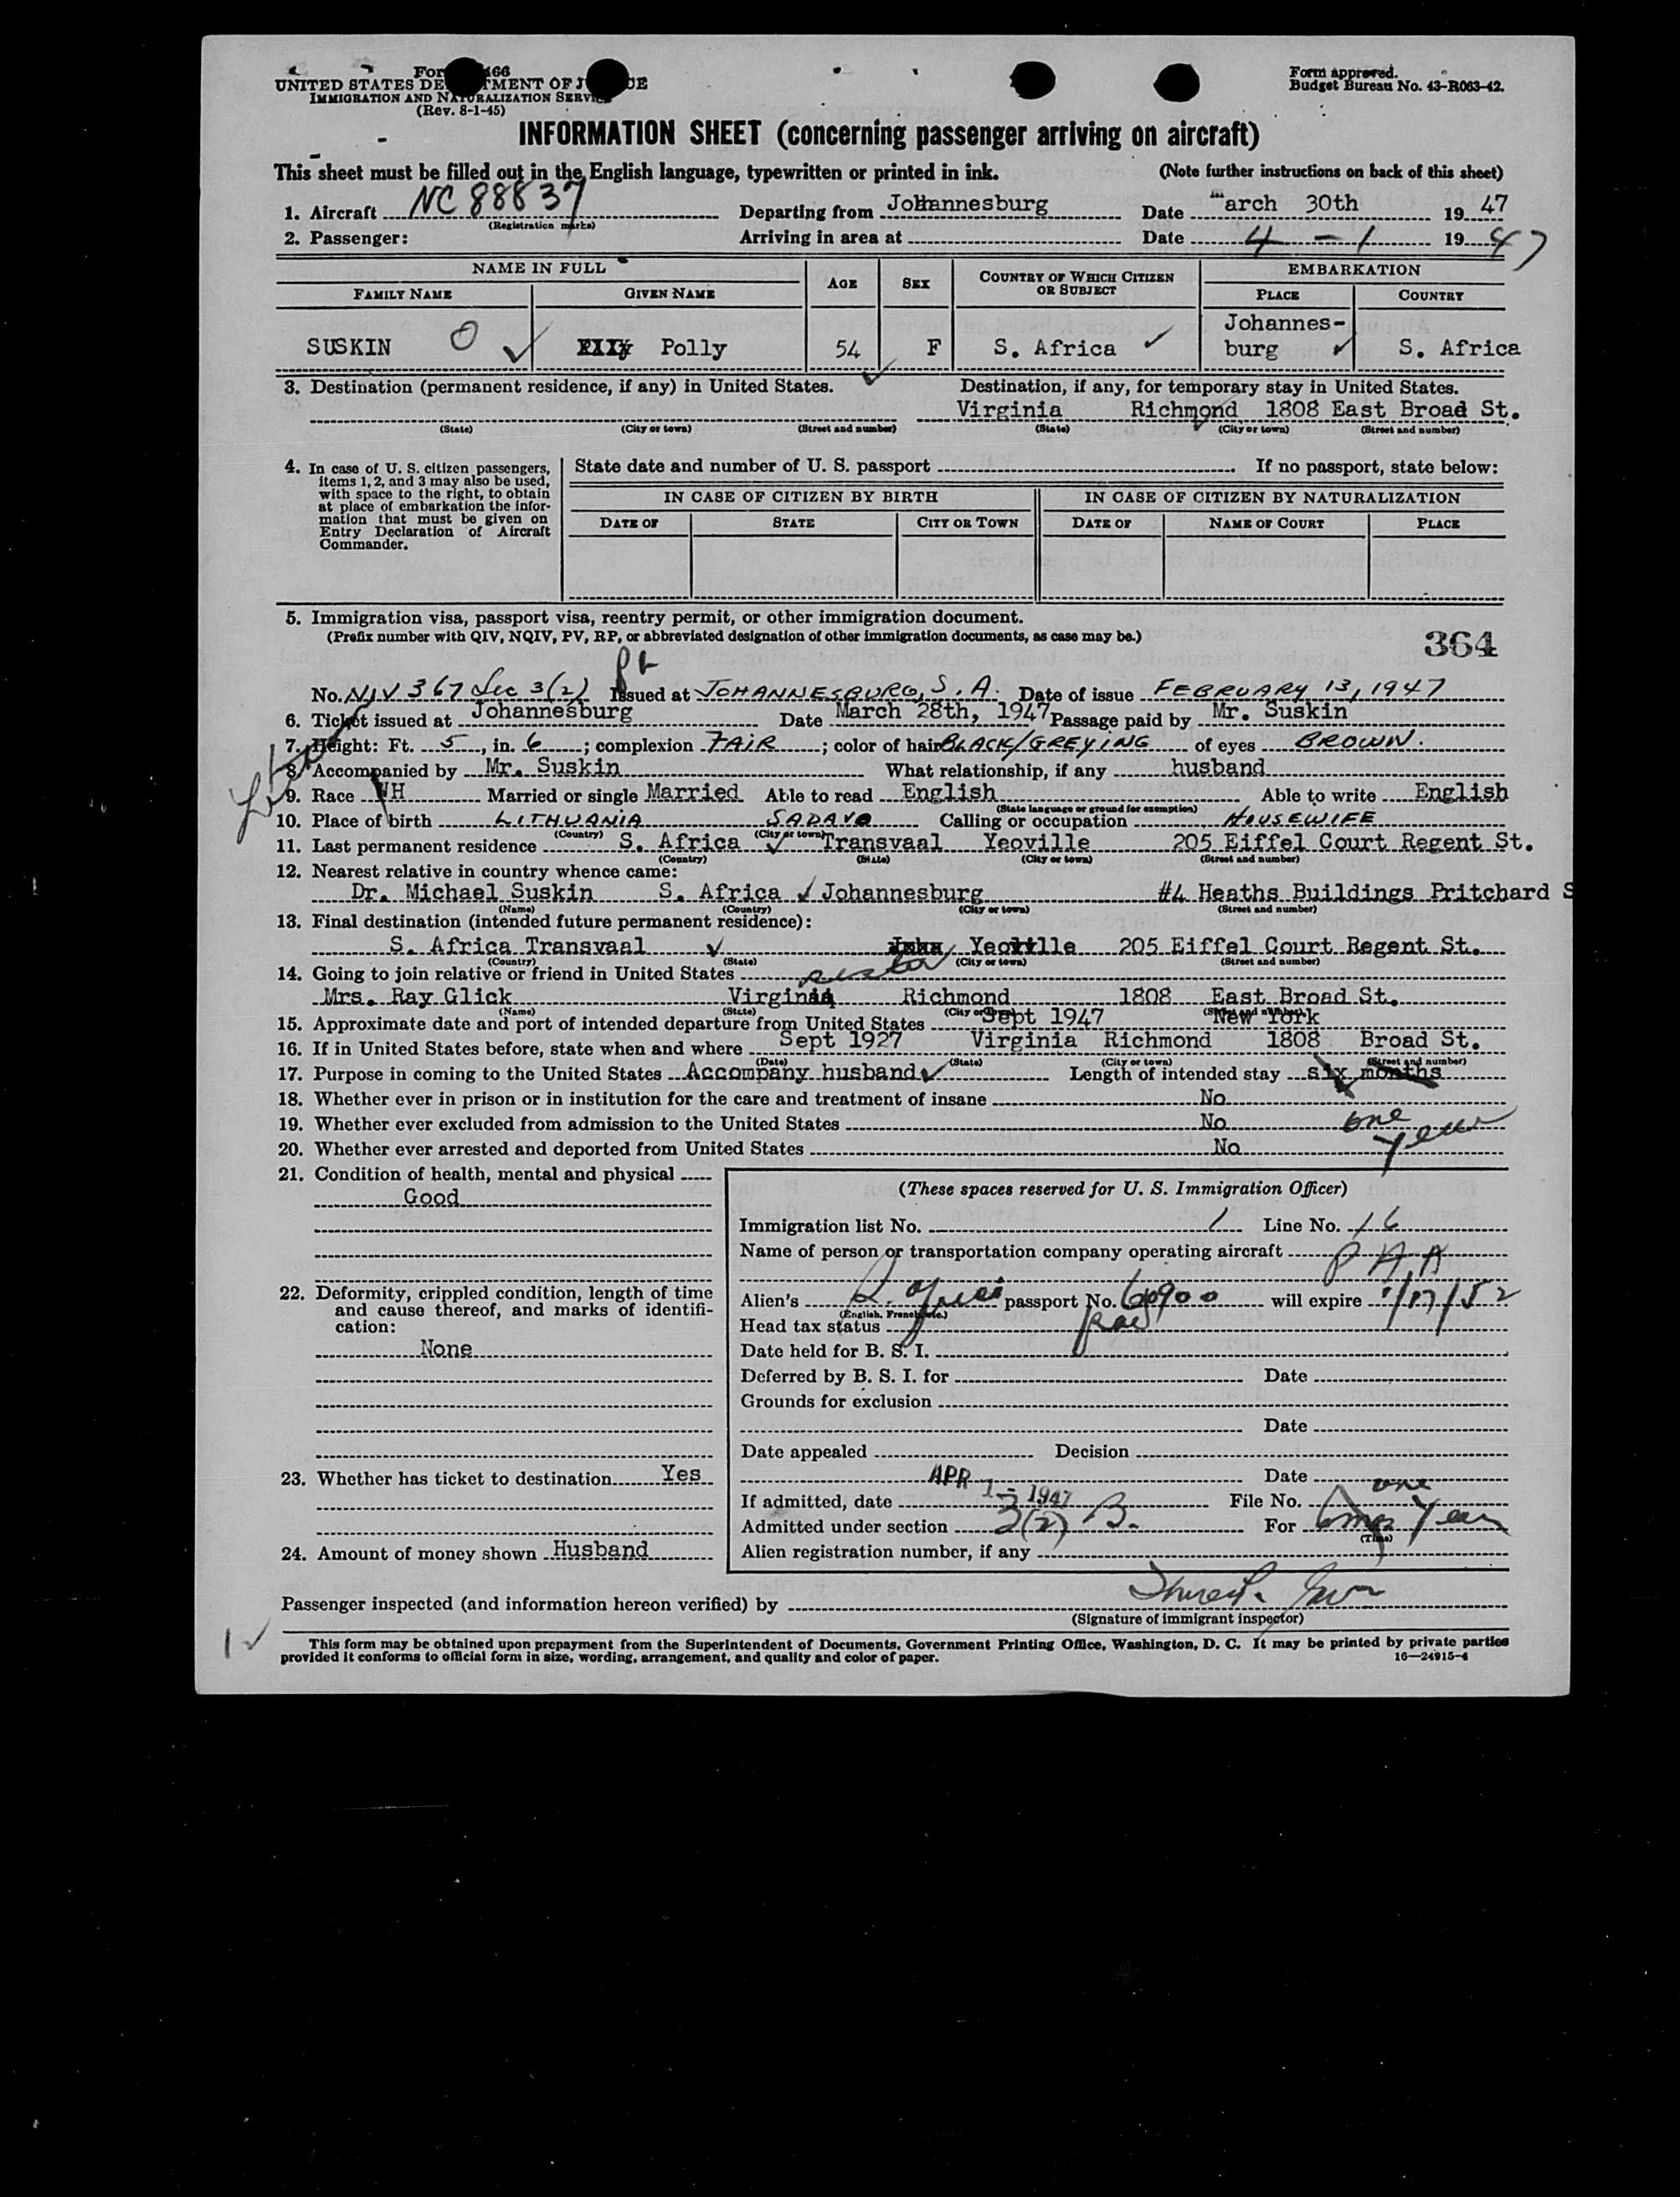 For 466
UNITED STATES DE TMENT OF J CE
IMMIGRATION AND NATURALIZATION SERVICE
(Rev. 8-1-45)
Form approved.
Budget Bureau No. 43-R063-42.
INFORMATION SHEET (concerning passenger arriving on aircraft)
This sheet must be filled out in the English language, typewritten or printed in ink. (Note further instructions on back of this sheet)
1. Aircraft NC 88837 Departing from Johannesburg Date March 30th 1947
(Registration marks)
2. Passenger: Arriving in area at Date 4-1 1947
NAME IN FULL AGE SEX COUNTRY OF WHICH CITIZEN OR SUBJECT EMBARKATION
FAMILY NAME GIVEN NAME PLACE COUNTRY
SUSKIN O Polly 54 F S. Africa Johannes-
burg S. Africa
3. Destination (permanent residence, if any) in United States. Destination, if any, for temporary stay in United States.
Virginia Richmond 1808 East Broad St.
(State) (City or town) (Street and number) (State) (City or town) (Street and number)
4. In case of U. S. citizen passengers, items 1, 2, and 3 may also be used, with space to the right, to obtain at place of embarkation the information that must be given on Entry Declaration of Aircraft Commander.
State date and number of U. S. passport If no passport, state below:
IN CASE OF CITIZEN BY BIRTH IN CASE OF CITIZEN BY NATURALIZATION
DATE OF STATE CITY OR TOWN DATE OF NAME OF COURT PLACE
5. Immigration visa, passport visa, reentry permit, or other immigration document.
(Prefix number with QIV, NQIV, PV, RP, or abbreviated designation of other immigration documents, as case may be.)
364
No. NIV 367 Sec 3(2) Issued at JOHANNESBURG, S. A. Date of issue FEBRUARY 13, 1947
6. Ticket issued at Johannesburg Date March 28th, 1947 Passage paid by Mr. Suskin
7. Height: Ft. 5, in. 6; complexion FAIR; color of hair BLACK/GREYING of eyes BROWN.
8. Accompanied by Mr. Suskin What relationship, if any husband
9. Race WH Married or single Married Able to read English Able to write English
(State language or ground for exemption)
10. Place of birth LITHUANIA SADAVA Calling or occupation HOUSEWIFE
(Country) (City or town)
11. Last permanent residence S. Africa Transvaal Yeoville 205 Eiffel Court Regent St.
(Country) (State) (City or town) (Street and number)
12. Nearest relative in country whence came:
Dr. Michael Suskin S. Africa Johannesburg #4 Heaths Buildings Pritchard S
(Name) (Country) (City or town) (Street and number)
13. Final destination (intended future permanent residence):
S. Africa Transvaal Yeoville 205 Eiffel Court Regent St.
(Country) (State) (City or town) (Street and number)
14. Going to join relative or friend in United States sister
Mrs. Ray Glick Virginia Richmond 1808 East Broad St.
(Name) (State) (City or town) (Street and number)
15. Approximate date and port of intended departure from United States Sept 1947 New York
16. If in United States before, state when and where Sept 1927 Virginia Richmond 1808 Broad St.
(Date) (State) (City or town) (Street and number)
17. Purpose in coming to the United States Accompany husband Length of intended stay six months
18. Whether ever in prison or in institution for the care and treatment of insane No
19. Whether ever excluded from admission to the United States No one
20. Whether ever arrested and deported from United States No year
21. Condition of health, mental and physical
Good
22. Deformity, crippled condition, length of time and cause thereof, and marks of identification:
None
23. Whether has ticket to destination Yes
24. Amount of money shown Husband
(These spaces reserved for U. S. Immigration Officer)
Immigration list No. 1 Line No. 16
Name of person or transportation company operating aircraft P A A
Alien's passport No. will expire 1/17/52
(English, French, etc.)
Head tax status
Date held for B. S. I.
Deferred by B. S. I. for Date
Grounds for exclusion
Date
Date appealed Decision
Date
If admitted, date APR 1 - 1947 File No.
Admitted under section 3(2) B. For one Year
(Time)
Alien registration number, if any
Passenger inspected (and information hereon verified) by
(Signature of immigrant inspector)
This form may be obtained upon prepayment from the Superintendent of Documents, Government Printing Office, Washington, D. C. It may be printed by private parties
provided it conforms to official form in size, wording, arrangement, and quality and color of paper. 16—24915-4